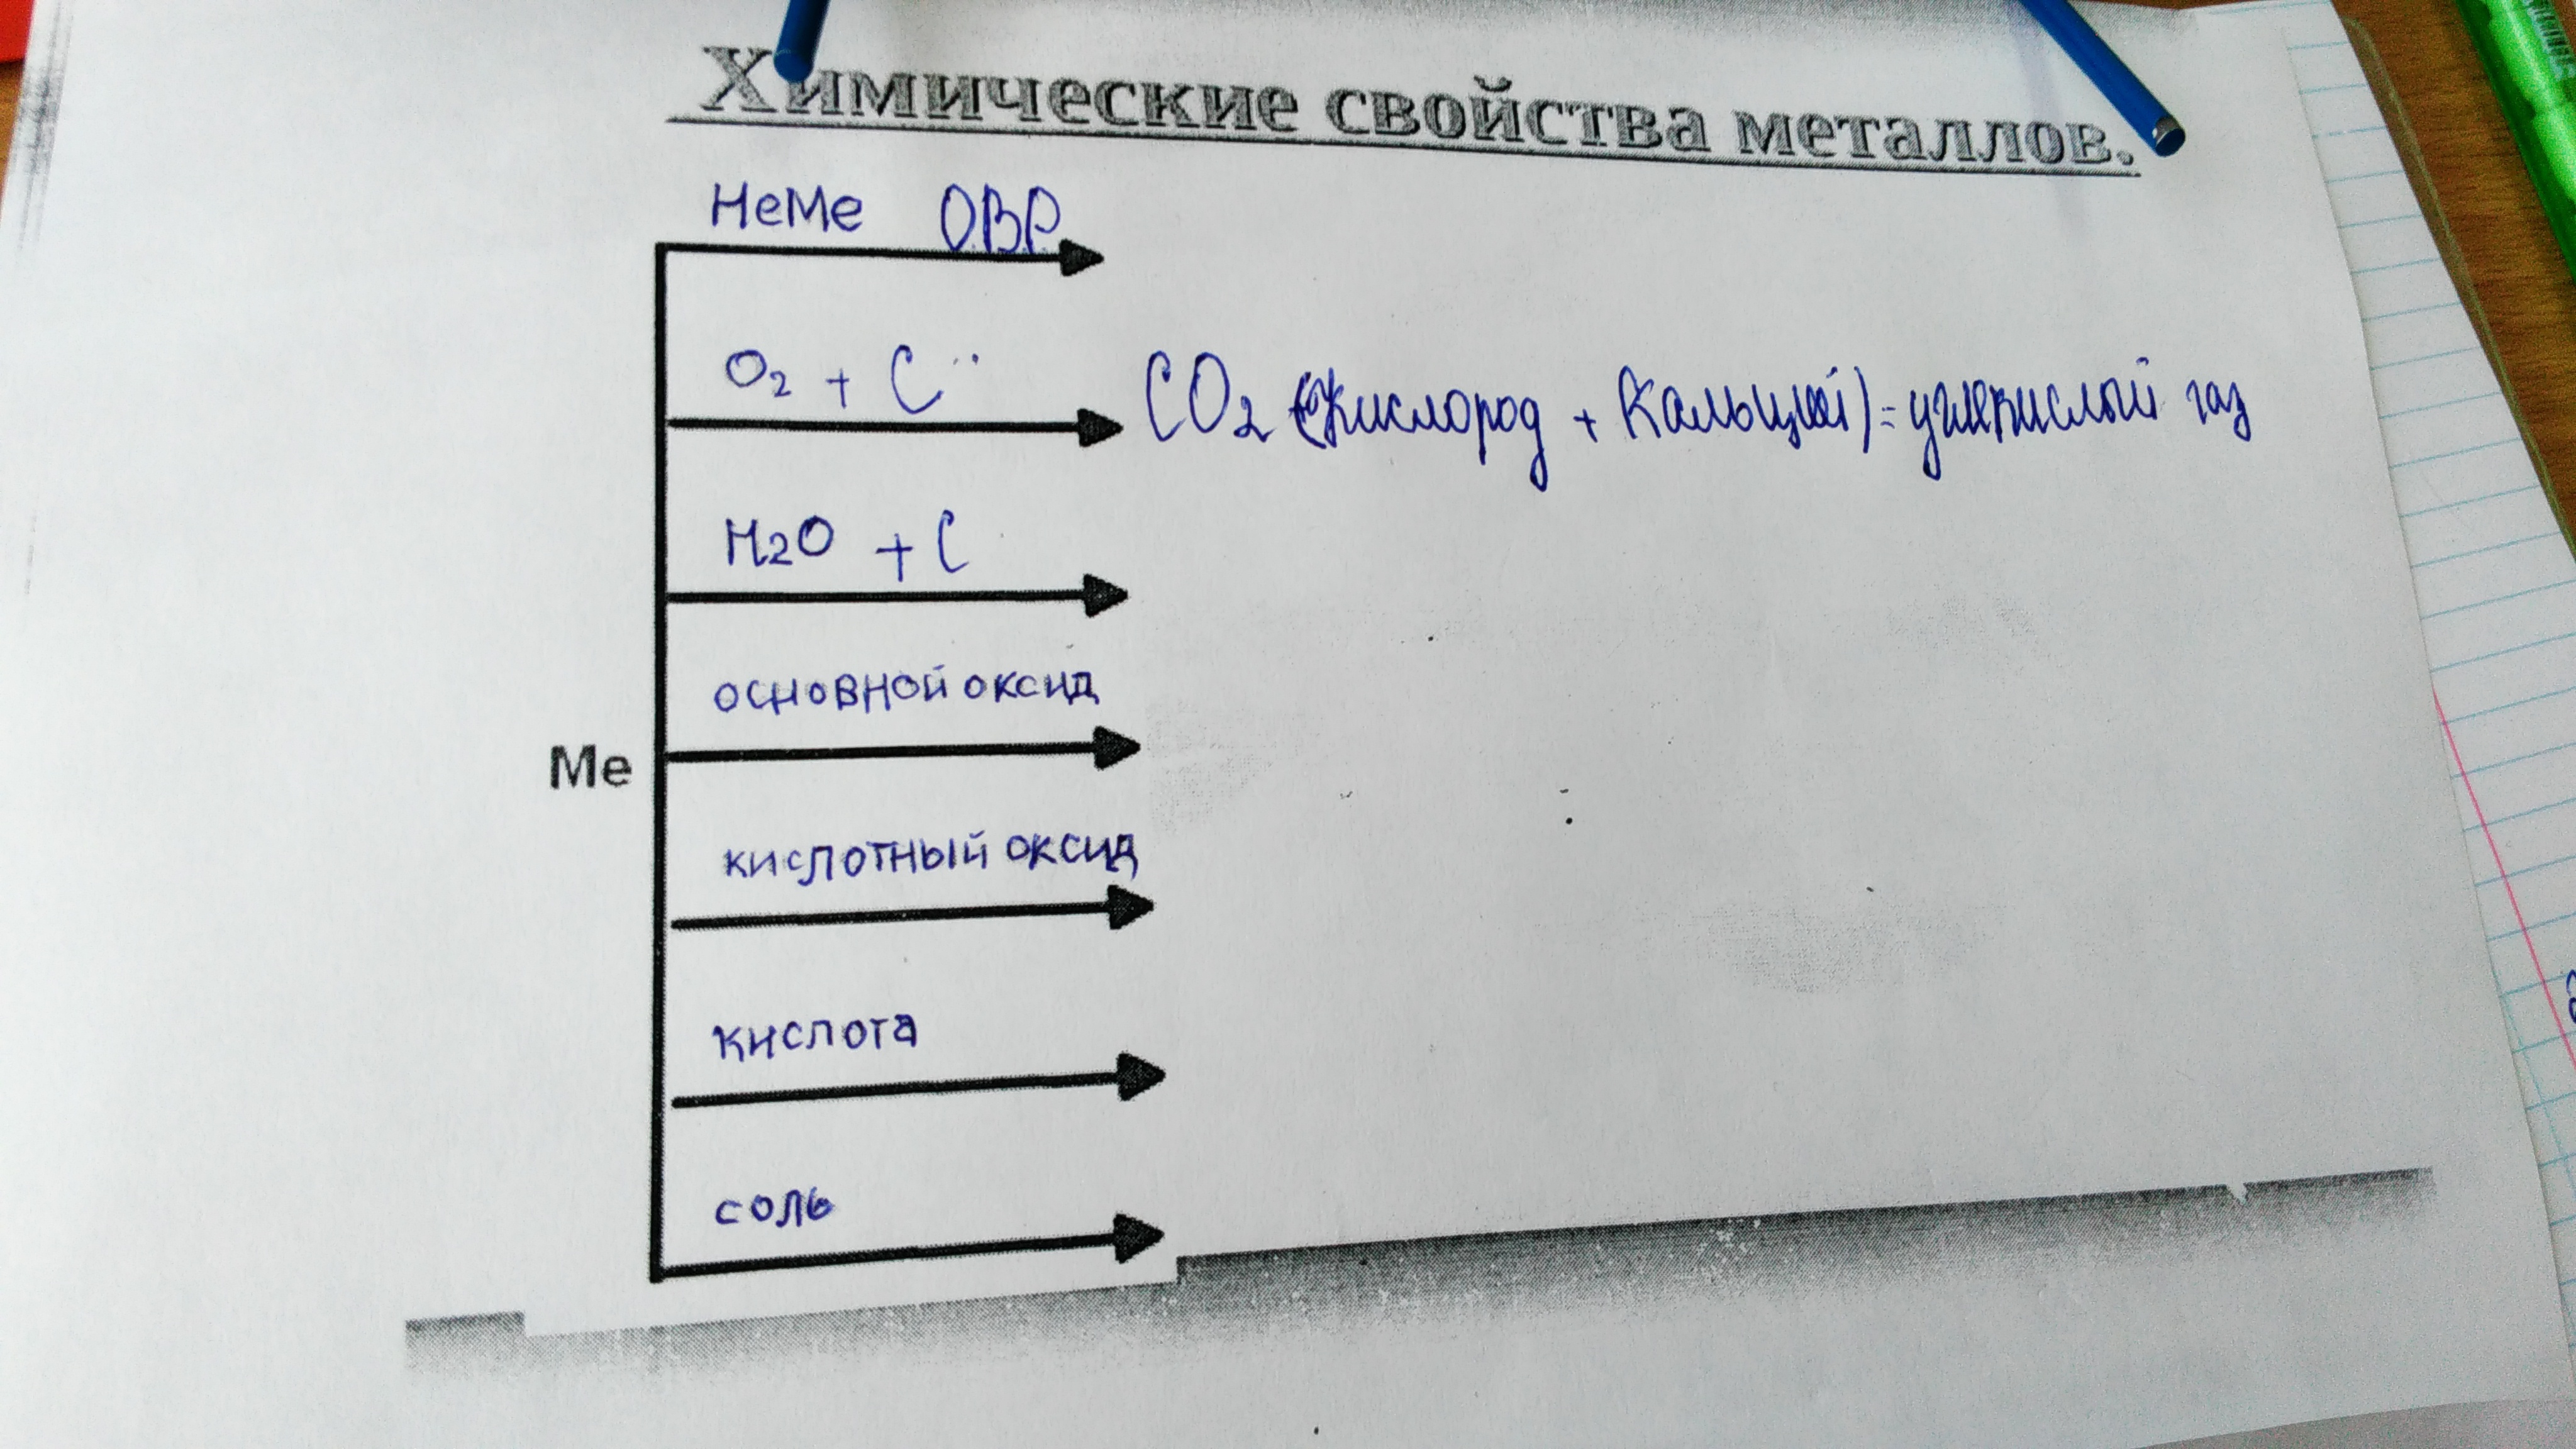 Химические свойства металлов.
НеМе ОВР
O2 + C
CO2 (Кислород + Кальций) = углекислый газ
H2O + C
основной оксид
Me
кислотный оксид
кислота
соль